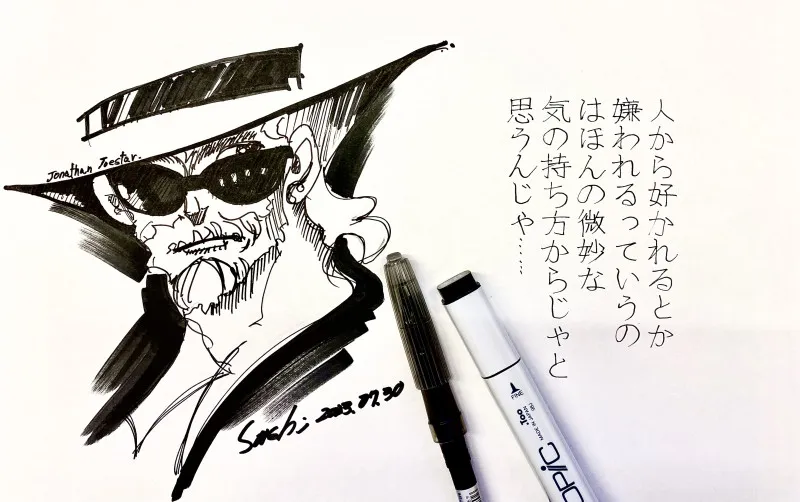 人から好かれるとか
嫌われるっていうの
はほんの微妙な
気の持ち方からじゃと
思うんじゃ……
Jonathan Joestar.
2023.07.30
FINE
.Too
MADE IN JAPAN
OPIC